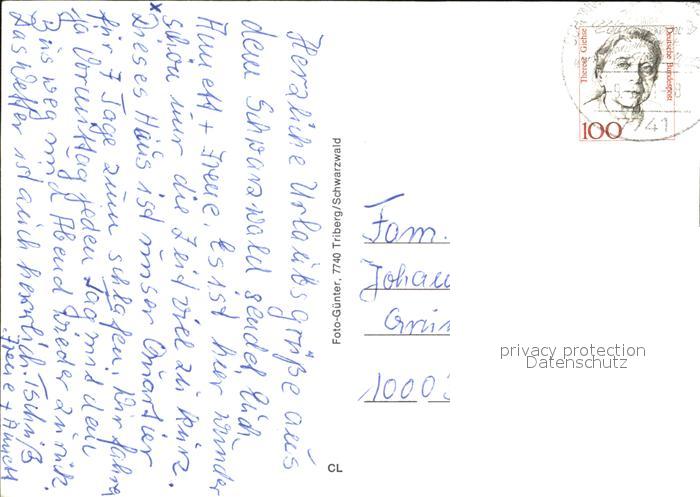 Herzliche Urlaubsgrüße aus
dem Schwarzwald sendet Euch
Annett + Irene. Es ist hier wunder
schön nur die Zeit viel zu kurz.
x Dieses Haus ist unser Quartier
für 7 Tage zum schlafen. Wir fahren
ja Vormittag jeden Tag mit dem
Bus weg und Abend wieder zurück.
Das Wetter ist auch herrlich. Tschüß
Irene + Annett
Foto-Günter, 7740 Triberg/Schwarzwald
CL
Therese Giehse
Deutsche Bundespost
100
7741
Fam.
Johann
1000
privacy protection
Datenschutz